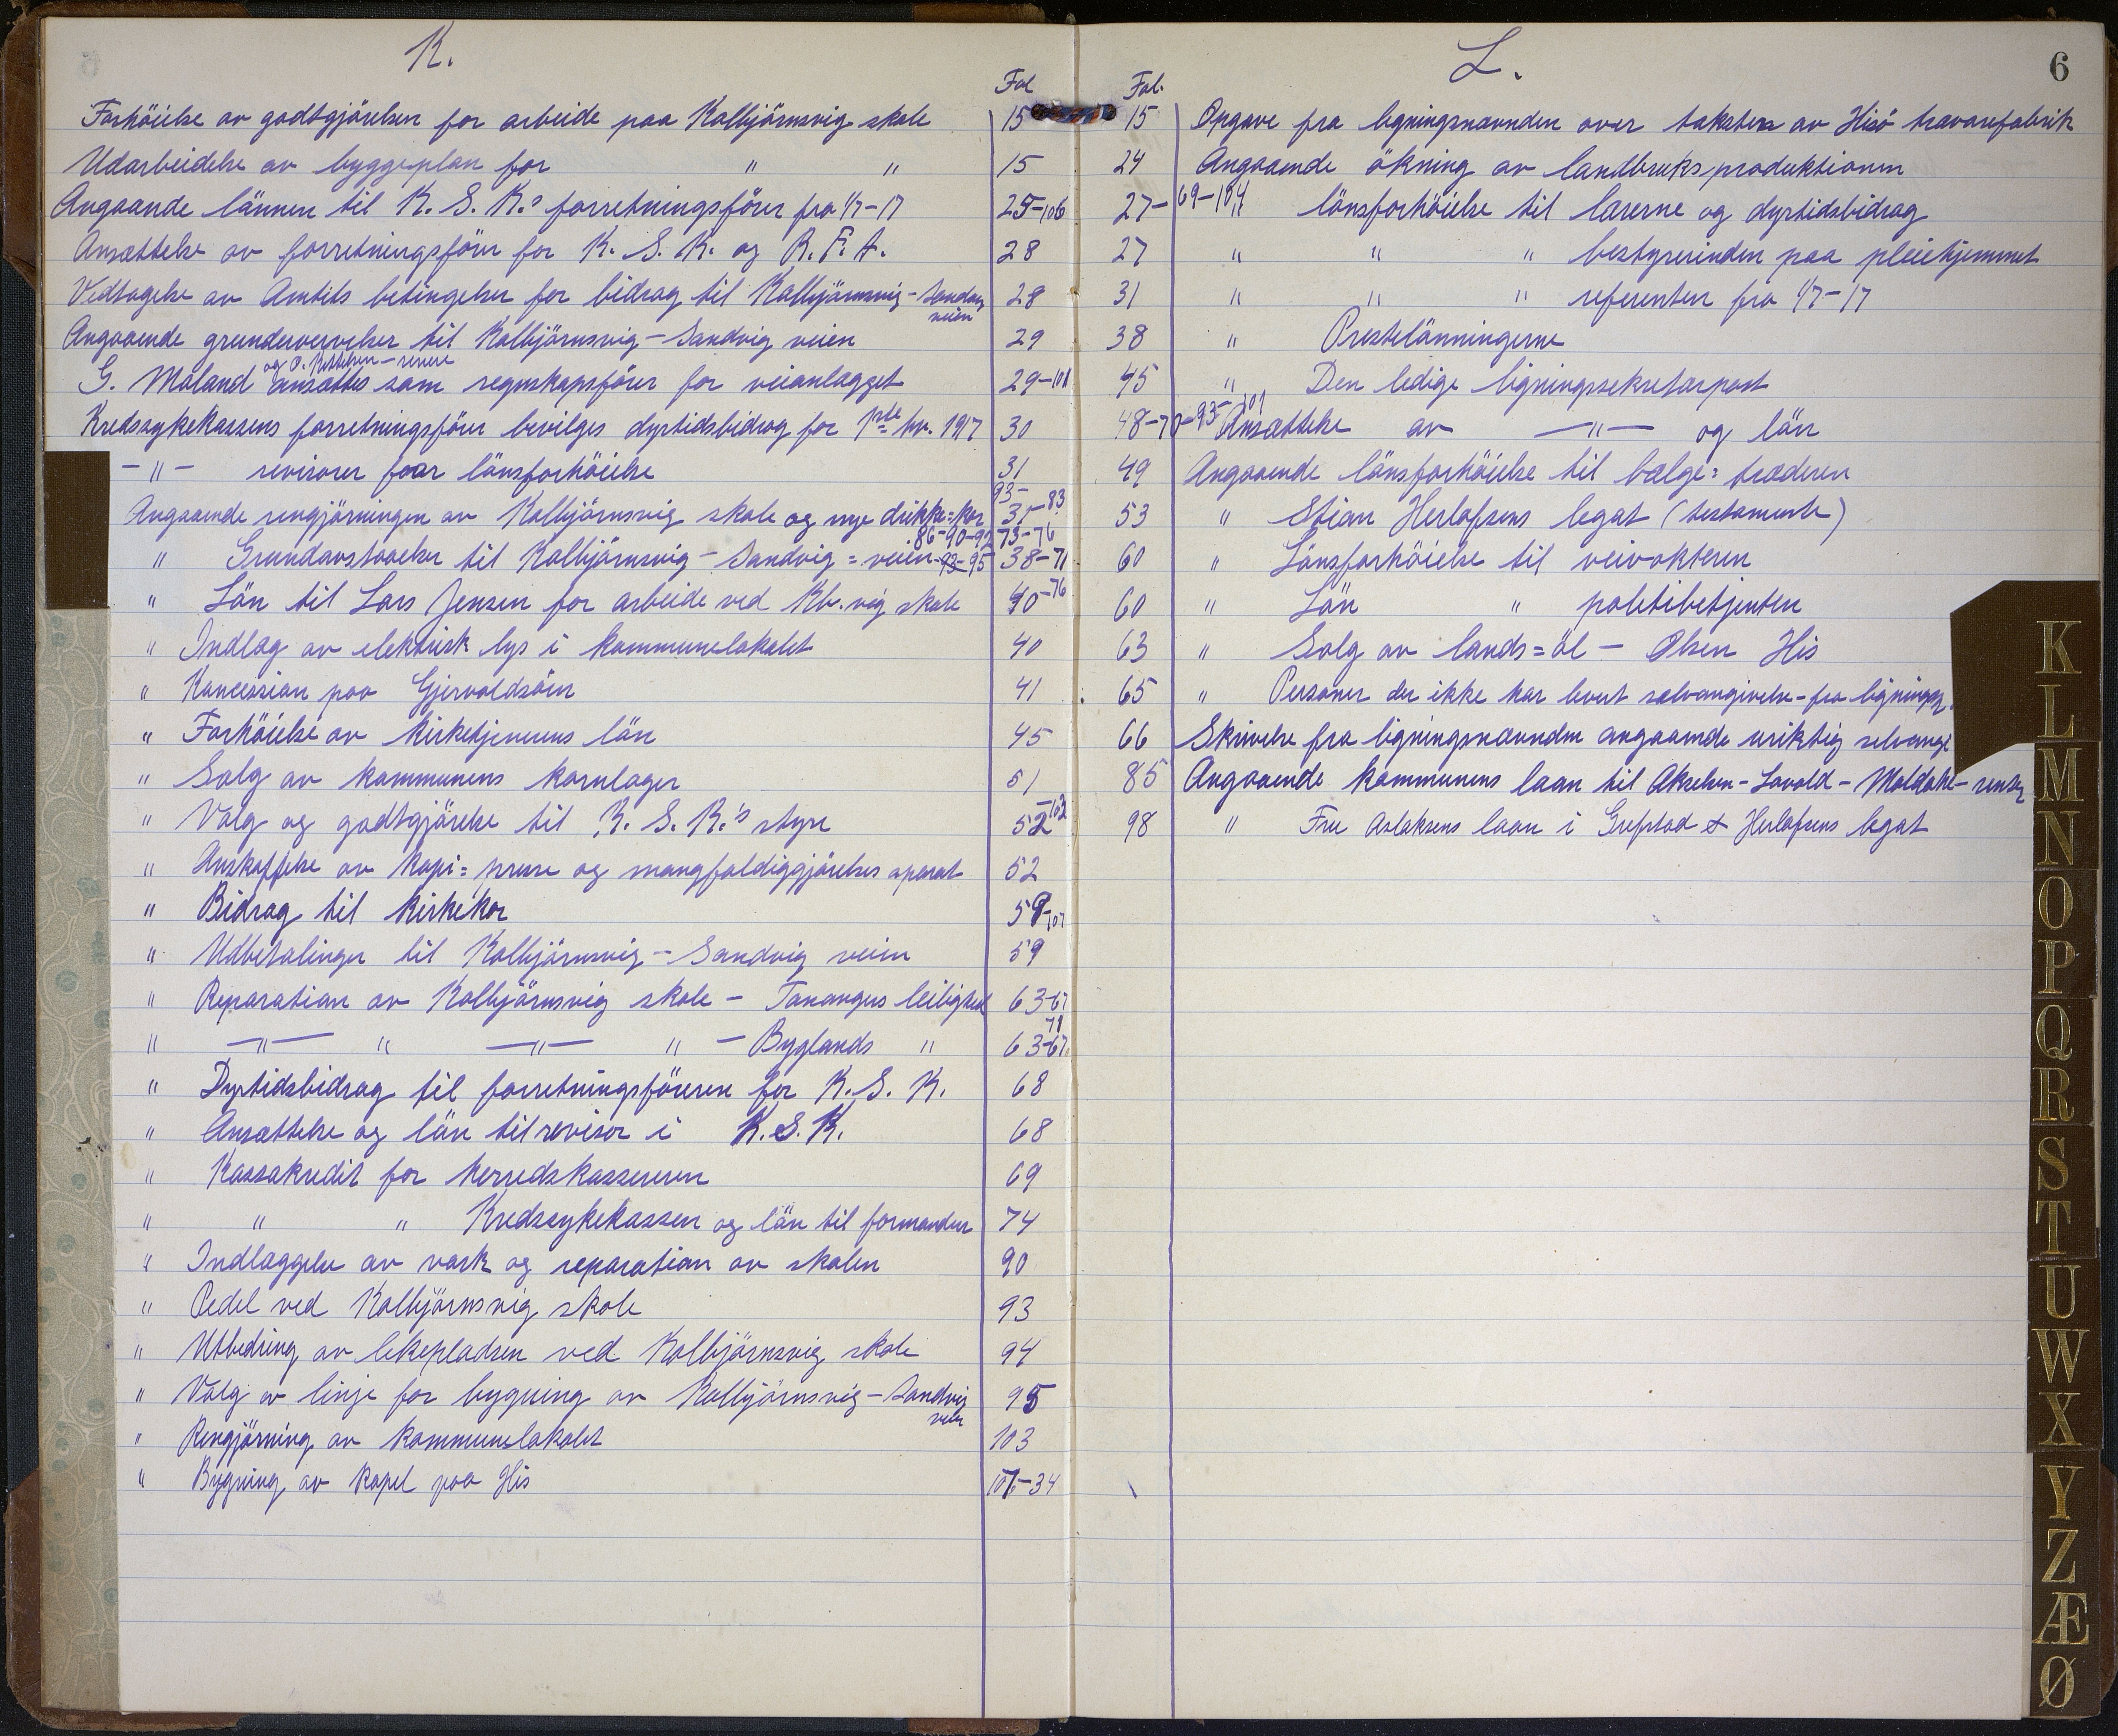 K.
Fol
Forhöielse av godtgjörelsen for arbeide paa Kolbjörnsvig skole 15
Udarbeidelse av byggeplan for " " 15
Angaaende lönnen til K. S. K.s forretningsförer fra 1/7-17 25-106
Ansættelse av forretningsförer for K. S. K. og R. F. A. 28
Vedtagelse av Amtets betingelser for bidrag til Kolbjörnsvig-Sandvig veien 28
Angaaende grunderververlser til Kolbjörnsvig-Sandvig veien 29
og O. Kittelsen-senere
G. Möland ansattes som regnskapsförer for veianlægget 29-101
Kredssykekassens forretningsförer bevilges dyrtidsbidrag for 1ste hv. 1917 30
-"- revisorer faar lönsforhöielse 31
Angaaende rengjörningen av Kolbjörnsvig skole og nye drikke=kar 93-35-83
" Grundavstaaelser til Kolbjörnsvig-Sandvig=veien 86-90-92 73-76 93-95 38-71
" Lön til Lars Jensen for arbeide ved Kb.vig skole 40-76
" Indlæg av elektrisk lys i kommunelokalet 40
" Koncession paa Gjervoldsöen 41
" Forhöielse av kirketjenerens lön 45
" Salg av kommunens kornlager 51
" Valg og godtgjörelse til K. S. K.'s styre 52-102
" Anskaffelse av kopi=presse og mangfoldiggjörelses aparat 52
" Bidrag til kirkekor 59-107
" Udbetalinger til Kolbjörnsvig-Sandvig veien 59
" Reparation av Kolbjörnsvig skole - Tanangers leilighed 63-67
" -"- " -"- " - Byglands " 63-67 71
" Dyrtidsbidrag til forretningsföreren for K. S. K. 68
" Ansættelse og lön til revisor i K. S. K. 68
" Kassakredit for herredskassereren 69
" " " Kredssykekassen og lön til formanden 74
" Indlæggelse av vask og reparation av skolen 90
" Pedel ved Kolbjörnsvig skole 93
" Utbedring av lekepladsen ved Kolbjörnsvig skole 94
" Valg av linje for bygning av Kolbjörnsvig-Sandvig veien 95
" Rengjörning av kommunelokalet 103
" Bygning av kapel paa His 107-34
L.
6
Fol.
15 Opgave fra ligningsnævnden over taksten av Hisö trævarefabrik
24 Angaaende ökning av landbruksproduktionen
27-69-104 " lönsforhöielse til lærerne og dyrtidsbidrag
27 " " " bestyrerinden paa pleiehjemmet
31 " " " referenten fra 1/7-17
38 " Prestelönningerne
45 " Den ledige ligningssekretærpost
48-70-93-101 Ansættelse av -"- og lön
49 Angaaende lönsforhöielse til bælge=træderen
53 " Stian Herlofsens legat (testamente)
60 " Lönsforhöielse til veivokteren
60 " Lön " politibetjenten
63 " Salg av lands=öl - Olsen His
65 " Personer der ikke har levert selvangivelse-fra ligningsn.
66 Skrivelse fra ligningsnævnden angaaende uriktig selvangi
85 Angaaende kommunens laan til Akselsen-Lovold-Moldake-renter
98 " Fru Aslaksens laan i Grefstad & Herlofsens legat
K
L
M
N
O
P
Q
R
S
T
U
W
X
Y
Z
Æ
Ø